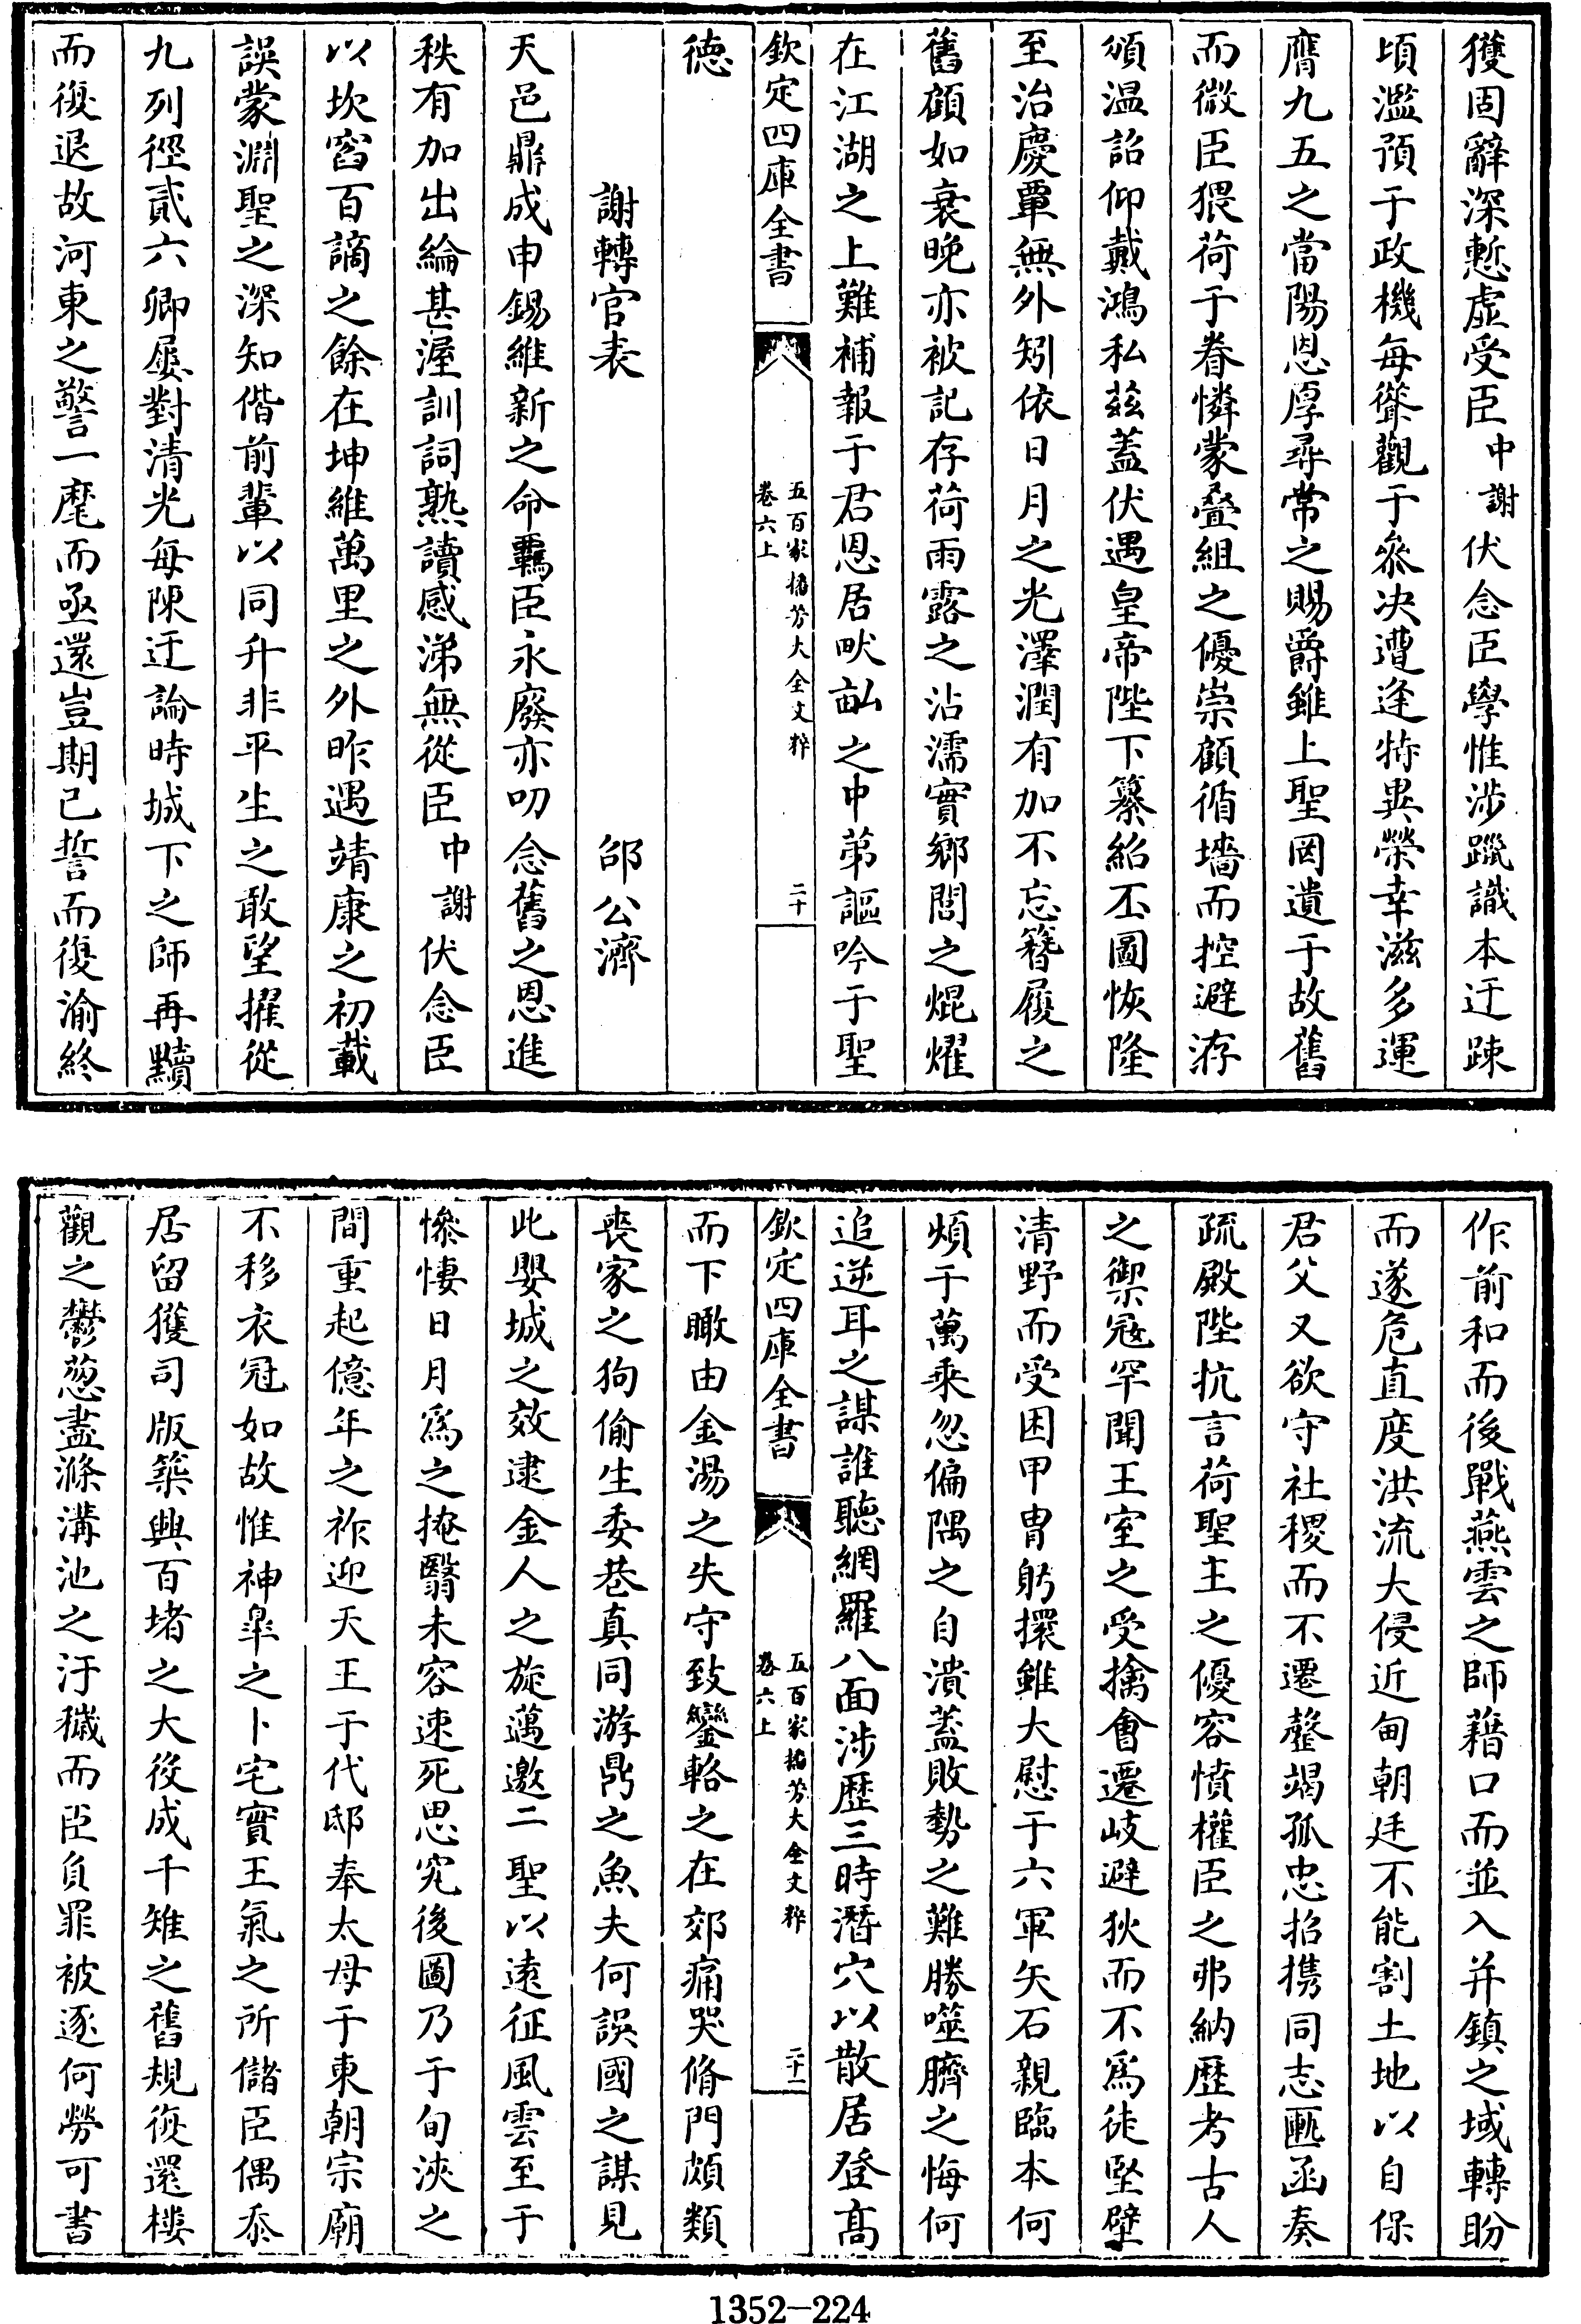 獲固辭深慙虛受臣中謝伏念臣學惟涉躐識本迂疎
頃濫預于政機每聳觀于叅决遭逢特異榮幸滋多運
膺九五之當陽恩厚尋常之賜爵雖上聖罔遺于故舊
而微臣猥荷于眷憐蒙疊組之優崇顧循墻而控避洊
頒温詔仰戴鴻私茲蓋伏遇皇帝陛下纂紹丕圖恢隆
至治慶覃無外矧依日月之光澤潤有加不忘簪履之
舊顧如衰晚亦被記存荷雨露之沾濡實鄉閭之焜燿
在江湖之上難補報于君恩居畎畝之中第謳吟于聖
欽定四庫全書
五百家播芳大全文粹
卷六上
二十
德
謝轉官表 邵公濟
天邑鼎成申錫維新之命覊臣永廢亦叨念舊之恩進
秩有加出綸甚渥訓詞熟讀感涕無從臣中謝伏念臣
以坎窞百謫之餘在坤維萬里之外昨遇靖康之初載
誤蒙淵聖之深知偕前輩以同升非平生之敢望擢從
九列徑貳六卿屢對清光每陳迂論時城下之師再黷
而復退故河東之警一麾而亟還豈期已誓而復渝終
作前和而後戰燕雲之師藉口而並入并鎮之域轉盼
而遂危直度洪流大侵近甸朝廷不能割土地以自保
君父又欲守社稷而不遷罄竭孤忠招擕同志匭函奏
疏殿陛抗言荷聖主之優容憤權臣之弗納歴考古人
之禦冦罕聞王室之受擒會遷岐避狄而不爲徒堅壁
清野而受困甲胄躬擐雖大慰于六軍矢石親臨本何
煩于萬乘忽偏隅之自潰蓋敗勢之難勝噬臍之悔何
追逆耳之謀誰聽網羅八面涉歴三時潛穴以散居登髙
欽定四庫全書
五百家播芳大全文粹
卷六上
二十一
而下瞰由金湯之失守致鑾輅之在郊痛哭脩門頗類
喪家之狗偷生委巷真同游鼎之魚夫何誤國之謀見
此嬰城之效逮金人之旋邁邀二聖以逺征風雲至于
慘悽日月爲之掩翳未容速死思究後圖乃于旬浹之
間重起億年之祚迎天王于代邸奉太母于東朝宗廟
不移衣冠如故惟神臯之卜宅實王氣之所儲臣偶忝
居留獲司版築興百堵之大役成千雉之舊規復還樓
觀之鬱葱盡滌溝池之汙穢而臣負罪被逐何勞可書
1352—224